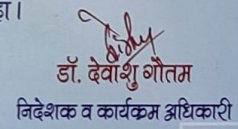 ज्ञ।
डॉ. देवांशु गौतम
निदेशक व कार्यक्रम अधिकारी